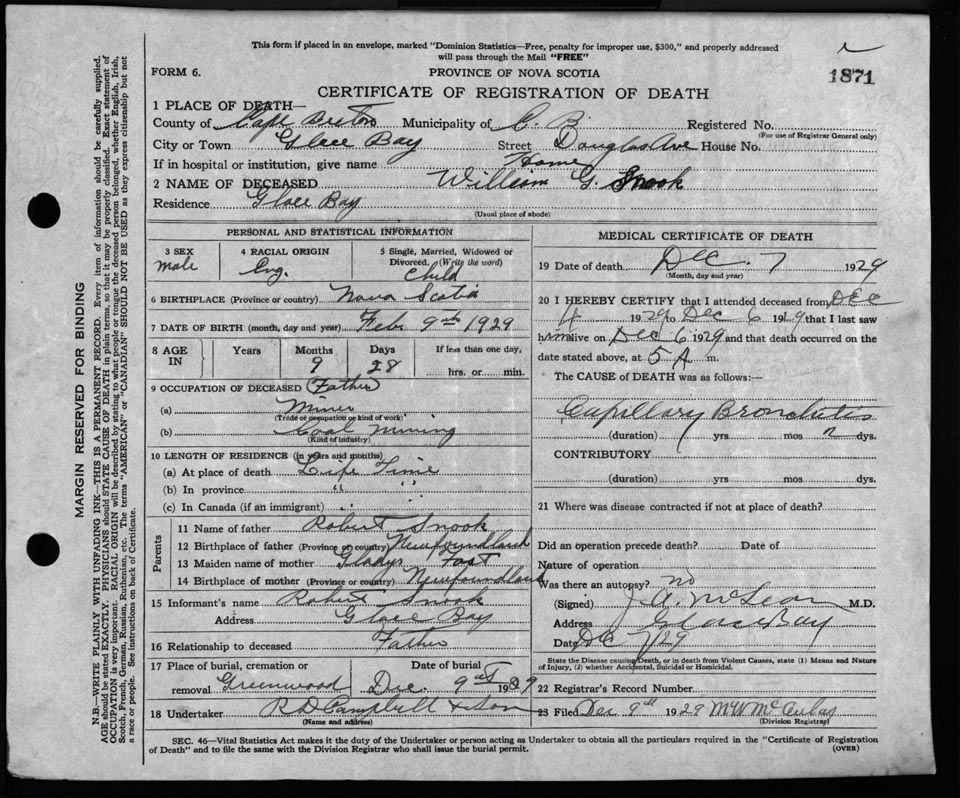 This form if placed in an envelope, marked "Dominion Statistics—Free, penalty for improper use, $300," and properly addressed
will pass through the Mail "FREE"
FORM 6.
PROVINCE OF NOVA SCOTIA
1871
CERTIFICATE OF REGISTRATION OF DEATH
1 PLACE OF DEATH—
County of Cape Breton Municipality of C. B. Registered No.
(For use of Registrar General only)
City or Town Glace Bay Street Douglas Ave House No.
If in hospital or institution, give name Home
2 NAME OF DECEASED William G. Snook
Residence Glace Bay
(Usual place of abode)
PERSONAL AND STATISTICAL INFORMATION
3 SEX 4 RACIAL ORIGIN 5 Single, Married, Widowed or
Divorced. (Write the word)
male Eng. Child
6 BIRTHPLACE (Province or country) Nova Scotia
7 DATE OF BIRTH (month, day and year) Feb 9th 1929
8 AGE IN Years Months Days If less than one day,
9 28 hrs. or min.
9 OCCUPATION OF DECEASED (Father)
(a) Miner
(Trade or occupation or kind of work)
(b) Coal Mining
(Kind of industry)
10 LENGTH OF RESIDENCE (in years and months)
(a) At place of death Life Time
(b) In province " "
(c) In Canada (if an immigrant) " "
Parents
11 Name of father Robert Snook
12 Birthplace of father (Province or country) Newfoundland
13 Maiden name of mother Gladys
14 Birthplace of mother (Province or country) Newfoundland
15 Informant's name Robert Snook
Address Glace Bay
16 Relationship to deceased Father
17 Place of burial, cremation or Date of burial
removal Greenwood Dec. 9 19
18 Undertaker R D Campbell & Son
(Name and address)
MEDICAL CERTIFICATE OF DEATH
19 Date of death Dec. 7 1929
(Month, day and year)
20 I HEREBY CERTIFY that I attended deceased from Dec
4 1929 to Dec 6 1929 that I last saw
him alive on Dec 6 1929 and that death occurred on the
date stated above, at 5 A m.
The CAUSE OF DEATH was as follows:—
Capillary Bronchitis
(duration) yrs mos 2 dys.
CONTRIBUTORY
(duration) yrs. mos. dys.
21 Where was disease contracted if not at place of death?
Did an operation precede death? Date of
Nature of operation
Was there an autopsy? no
(Signed) J. A. McLean M.D.
Address Glace Bay
Date Dec 7/29
State the Disease causing Death, or in death from Violent Causes, state (1) Means and Nature
of Injury, (2) whether Accidental, Suicidal or Homicidal.
22 Registrar's Record Number
23 Filed Dec 9th 1929 M W McAulay
(Division Registrar)
SEC. 46—Vital Statistics Act makes it the duty of the Undertaker or person acting as Undertaker to obtain all the particulars required in the "Certificate of Registration
of Death" and to file the same with the Division Registrar who shall issue the burial permit.
(OVER)
MARGIN RESERVED FOR BINDING
N.B.—WRITE PLAINLY WITH UNFADING INK—THIS IS A PERMANENT RECORD. Every item of information should be carefully supplied.
AGE should be stated EXACTLY. PHYSICIANS should STATE CAUSE OF DEATH in plain terms, so that it may be properly classified. Exact statement of
OCCUPATION is very important. RACIAL ORIGIN will be described by stating to what people or tongue the deceased person belonged, whether English, Irish,
Scotch, French, German, Russian, Ruthenian, etc. The terms "AMERICAN" or "CANADIAN" SHOULD NOT BE USED as they express citizenship but not
a race or people. See instructions on back of Certificate.